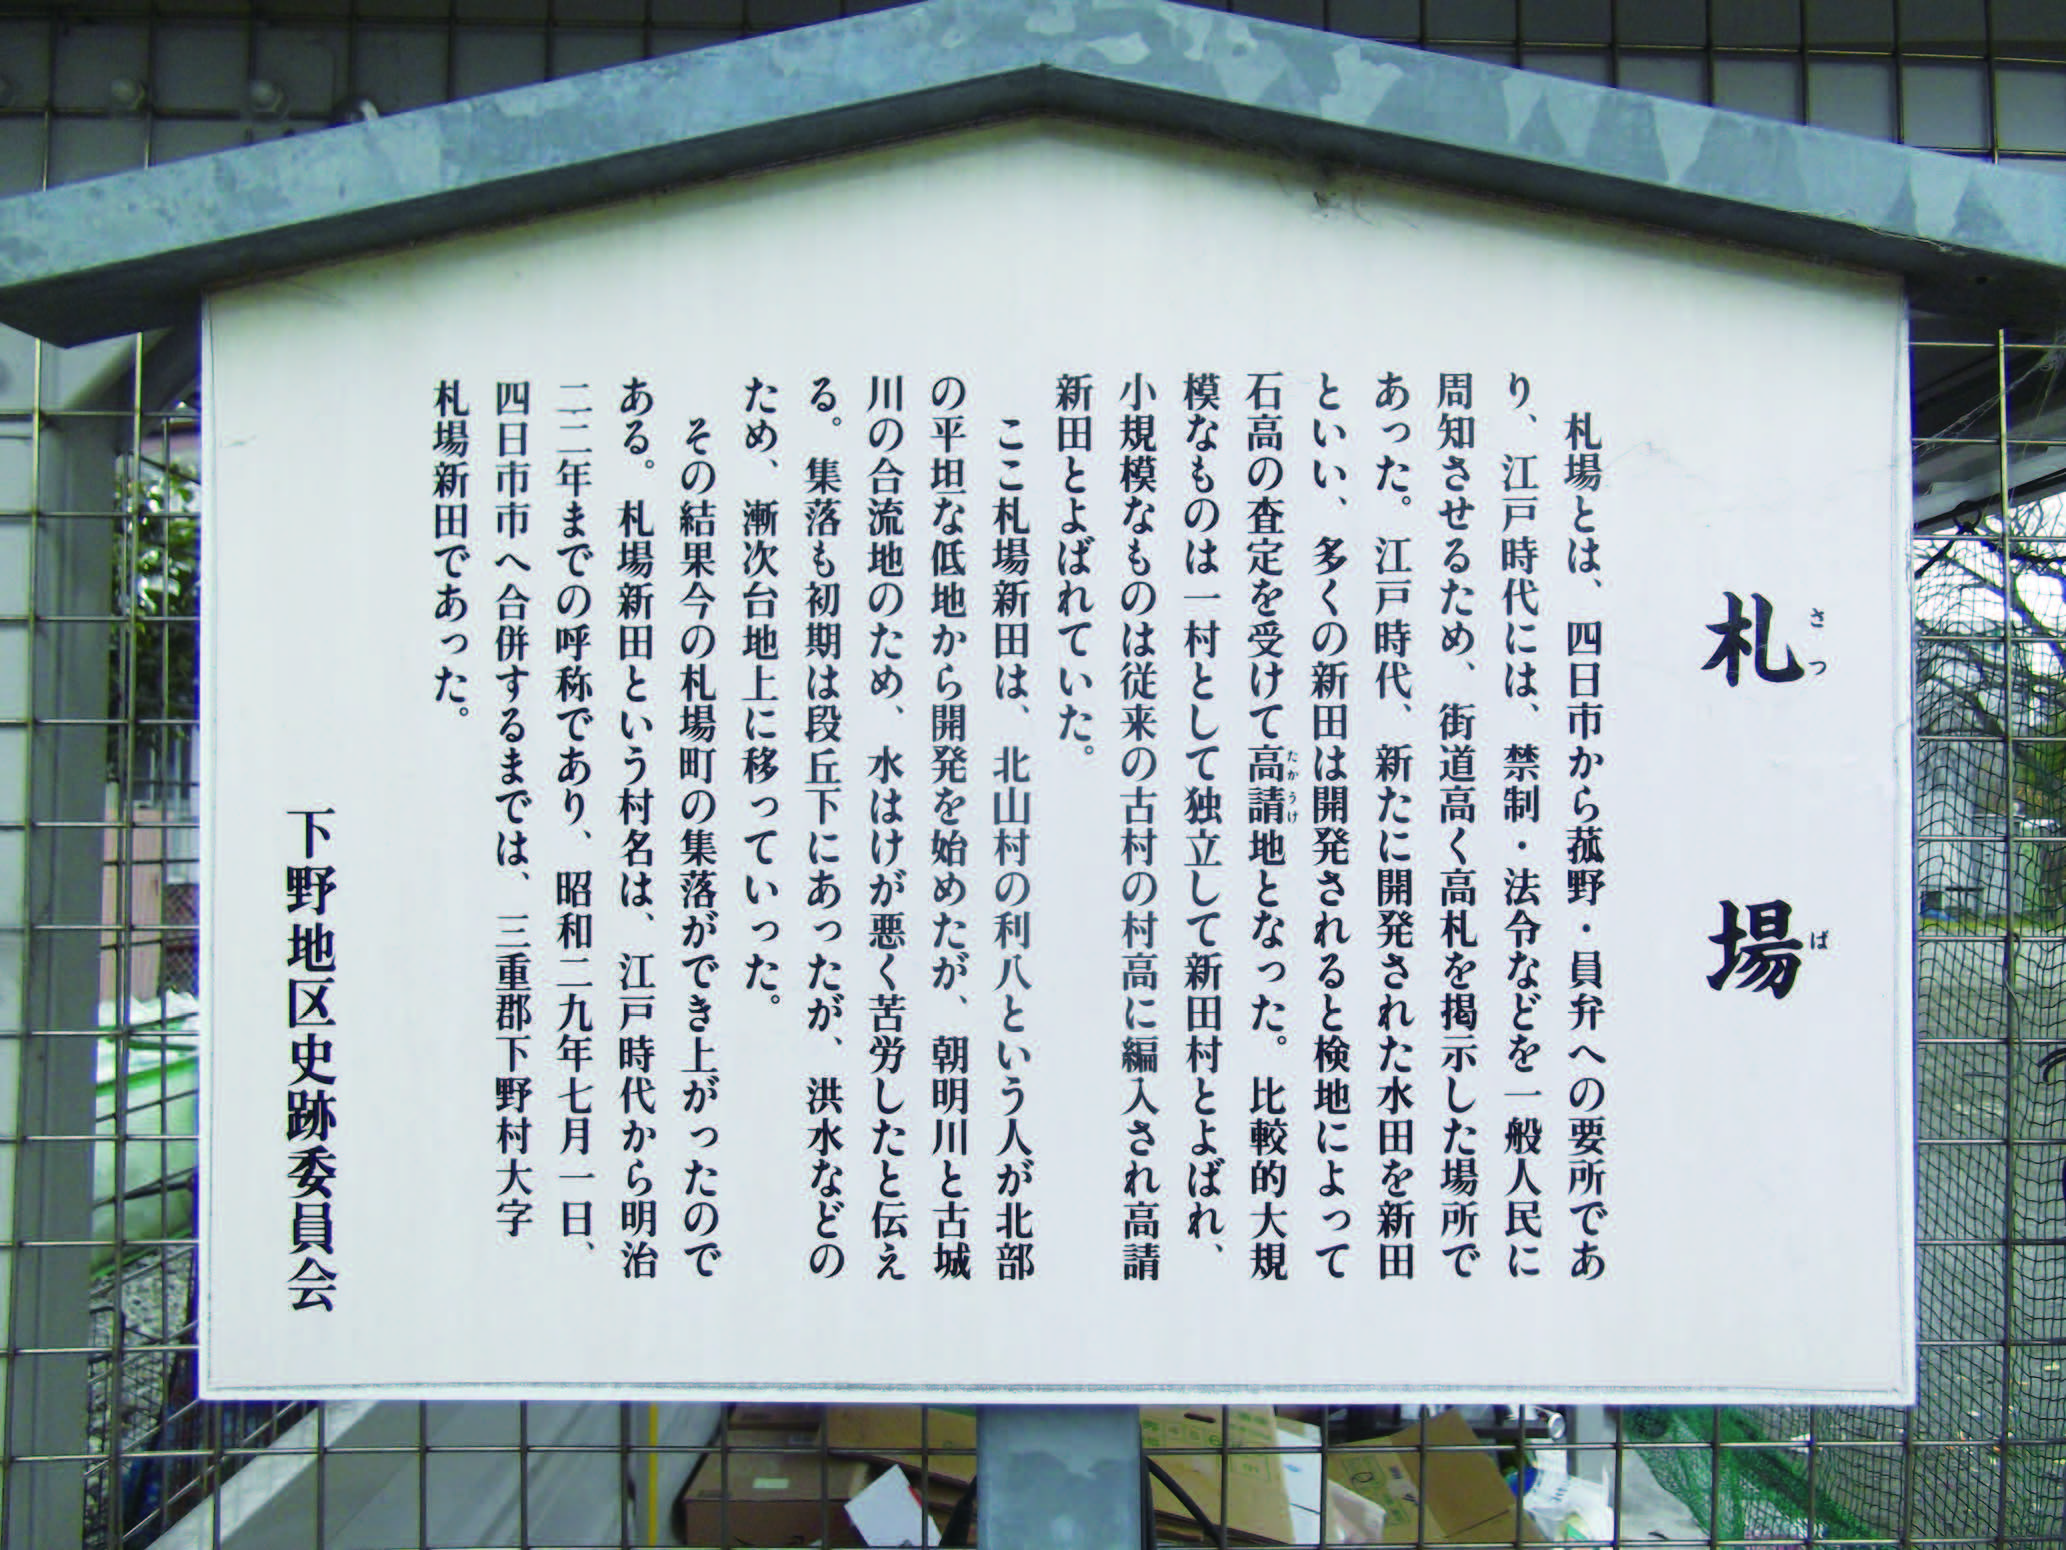 札場
さつば
札場とは、四日市から菰野・員弁への要所であ
り、江戸時代には、禁制・法令などを一般人民に
周知させるため、街道高く高札を掲示した場所で
あった。江戸時代、新たに開発された水田を新田
といい、多くの新田は開発されると検地によって
石高の査定を受けて高請地となった。比較的大規
たかうけ
模なものは一村として独立して新田村とよばれ、
小規模なものは従来の古村の村高に編入され高請
新田とよばれていた。
ここ札場新田は、北山村の利八という人が北部
の平坦な低地から開発を始めたが、朝明川と古城
川の合流地のため、水はけが悪く苦労したと伝え
る。集落も初期は段丘下にあったが、洪水などの
ため、漸次台地上に移っていった。
その結果今の札場町の集落ができ上がったので
ある。札場新田という村名は、江戸時代から明治
二二年までの呼称であり、昭和二九年七月一日、
四日市市へ合併するまでは、三重郡下野村大字
札場新田であった。
下野地区史跡委員会